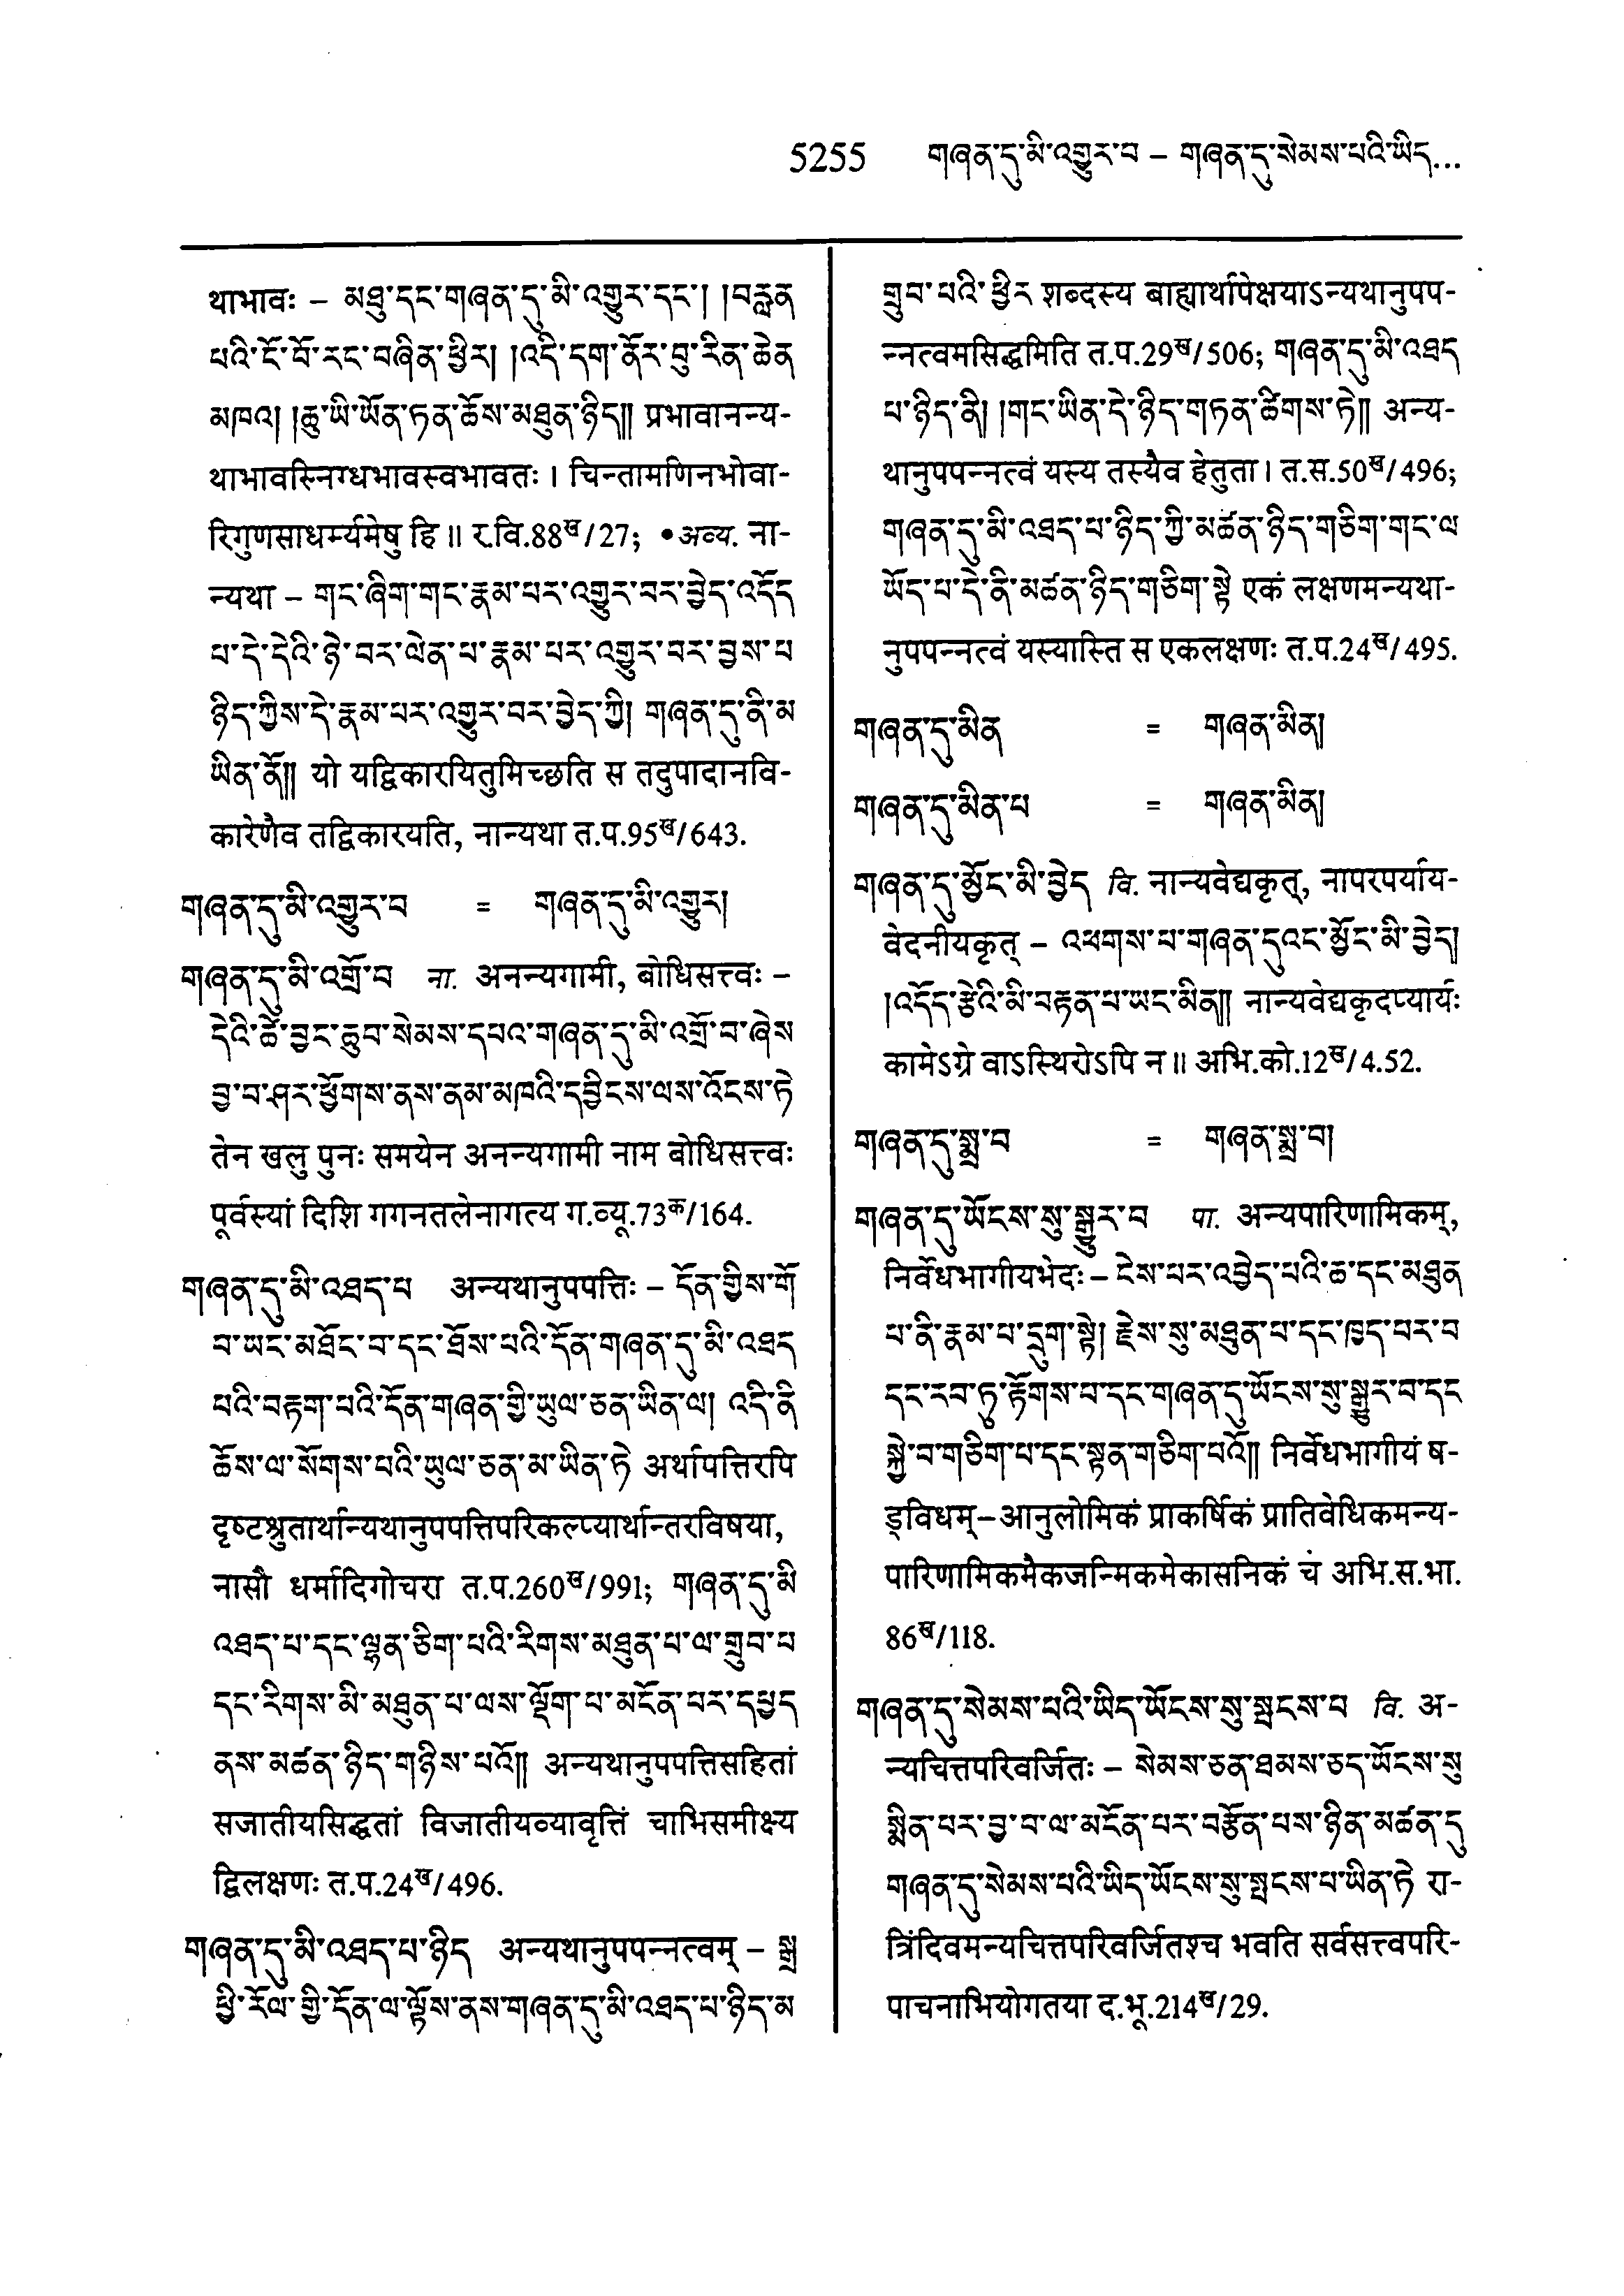 5255 གཞན་དུ་མི་འགྱུར་བ – གཞན་དུ་སེམས་པའི་ཡིད...
थाभावः – མཐུ་དང་གཞན་དུ་མི་འགྱུར་དང་། །བརླན
པའི་ངོ་བོ་རང་བཞིན་ཕྱིར། །འདི་དག་ནོར་བུ་རིན་ཆེན
མཁའ། །ཆུ་ཡི་ཡོན་ཏན་ཆོས་མཐུན་ཉིད།། प्रभावानन्य-
थाभावस्निग्धभावस्वभावतः । चिन्तामणिनभोवा-
रिगुणसाधर्म्यमेषु हि ॥ र.वि.88ख/27; • अव्य. ना-
न्यथा – གང་ཞིག་གང་རྣམ་པར་འགྱུར་བར་བྱེད་འདོད
པ་དེ་དེའི་ཉེ་བར་ལེན་པ་རྣམ་པར་འགྱུར་བར་བྱས་པ
ཉིད་ཀྱིས་དེ་རྣམ་པར་འགྱུར་བར་བྱེད་ཀྱི། གཞན་དུ་ནི་མ
ཡིན་ནོ།། यो यद्विकारयितुमिच्छति स तदुपादानवि-
कारेणैव तद्विकारयति, नान्यथा त.प.95ख/643.
གཞན་དུ་མི་འགྱུར་བ = གཞན་དུ་མི་འགྱུར།
གཞན་དུ་མི་འགྲོ་བ ना. अनन्यगामी, बोधिसत्त्वः –
དེའི་ཚེ་བྱང་ཆུབ་སེམས་དཔའ་གཞན་དུ་མི་འགྲོ་བ་ཞེས
བྱ་བ་ཤར་ཕྱོགས་ནས་ནམ་མཁའི་དབྱིངས་ལས་འོངས་ཏེ
तेन खलु पुनः समयेन अनन्यगामी नाम बोधिसत्त्वः
पूर्वस्यां दिशि गगनतलेनागत्य ग.व्यू.73क/164.
གཞན་དུ་མི་འཐད་པ अन्यथानुपपत्तिः – དོན་གྱིས་གོ
བ་ཡང་མཐོང་བ་དང་ཐོས་པའི་དོན་གཞན་དུ་མི་འཐད
པའི་བརྟག་པའི་དོན་གཞན་གྱི་ཡུལ་ཅན་ཡིན་ལ། འདི་ནི
ཆོས་ལ་སོགས་པའི་ཡུལ་ཅན་མ་ཡིན་ཏེ अर्थापत्तिरपि
दृष्टश्रुतार्थान्यथानुपपत्तिपरिकल्प्यार्थान्तरविषया,
नासौ धर्मादिगोचरा त.प.260ख/991; གཞན་དུ་མི
འཐད་པ་དང་ལྷན་ཅིག་པའི་རིགས་མཐུན་པ་ལ་གྲུབ་པ
དང་རིགས་མི་མཐུན་པ་ལས་ལྡོག་པ་མངོན་པར་དཔྱད
ནས་མཚན་ཉིད་གཉིས་པའོ།། अन्यथानुपपत्तिसहितां
सजातीयसिद्धतां विजातीयव्यावृत्तिं चाभिसमीक्ष्य
द्विलक्षणः त.प.24ख/496.
གཞན་དུ་མི་འཐད་པ་ཉིད अन्यथानुपपन्नत्वम् – སྒྲ
ཕྱི་རོལ་གྱི་དོན་ལ་ལྟོས་ནས་གཞན་དུ་མི་འཐད་པ་ཉིད་མ
གྲུབ་པའི་ཕྱིར शब्दस्य बाह्यार्थापेक्षयाऽन्यथानुपप-
न्नत्वमसिद्धमिति त.प.29ख/506; གཞན་དུ་མི་འཐད
པ་ཉིད་ནི། །གང་ཡིན་དེ་ཉིད་གཏན་ཚིགས་ཏེ།། अन्य-
थानुपपन्नत्वं यस्य तस्यैव हेतुता । त.स.50ख/496;
གཞན་དུ་མི་འཐད་པ་ཉིད་ཀྱི་མཚན་ཉིད་གཅིག་གང་ལ
ཡོད་པ་དེ་ནི་མཚན་ཉིད་གཅིག་སྟེ एकं लक्षणमन्यथा-
नुपपन्नत्वं यस्यास्ति स एकलक्षणः त.प.24ख/495.
གཞན་དུ་མིན = གཞན་མིན།
གཞན་དུ་མིན་པ = གཞན་མིན།
གཞན་དུ་མྱོང་མི་བྱེད वि. नान्यवेद्यकृत्, नापरपर्याय-
वेदनीयकृत् – འཕགས་པ་གཞན་དུའང་མྱོང་མི་བྱེད།
།འདོད་རྩེའི་མི་བརྟན་པ་ཡང་མིན།། नान्यवेद्यकृदप्यार्यः
कामेऽग्रे वाऽस्थिरोऽपि न ॥ अभि.को.12ख/4.52.
གཞན་དུ་སྨྲ་བ = གཞན་སྨྲ་བ།
གཞན་དུ་ཡོངས་སུ་སྒྱུར་བ पा. अन्यपारिणामिकम्,
निर्वेधभागीयभेदः – ངེས་པར་འབྱེད་པའི་ཆ་དང་མཐུན
པ་ནི་རྣམ་པ་དྲུག་སྟེ། རྗེས་སུ་མཐུན་པ་དང་ཁྱད་པར་བ
དང་རབ་ཏུ་རྟོགས་པ་དང་གཞན་དུ་ཡོངས་སུ་སྒྱུར་བ་དང
སྐྱེ་བ་གཅིག་པ་དང་སྟན་གཅིག་པའོ།། निर्वेधभागीयं ष-
ड्विधम्–आनुलोमिकं प्राकर्षिकं प्रातिवेधिकमन्य-
पारिणामिकमैकजन्मिकमेकासनिकं च अभि.स.भा.
86ख/118.
གཞན་དུ་སེམས་པའི་ཡིད་ཡོངས་སུ་སྤངས་པ वि. अ-
न्यचित्तपरिवर्जितः – སེམས་ཅན་ཐམས་ཅད་ཡོངས་སུ
སྨིན་པར་བྱ་བ་ལ་མངོན་པར་བརྩོན་པས་ཉིན་མཚན་དུ
གཞན་དུ་སེམས་པའི་ཡིད་ཡོངས་སུ་སྤངས་པ་ཡིན་ཏེ रा-
त्रिंदिवमन्यचित्तपरिवर्जितश्च भवति सर्वसत्त्वपरि-
पाचनाभियोगतया द.भू.214ख/29.